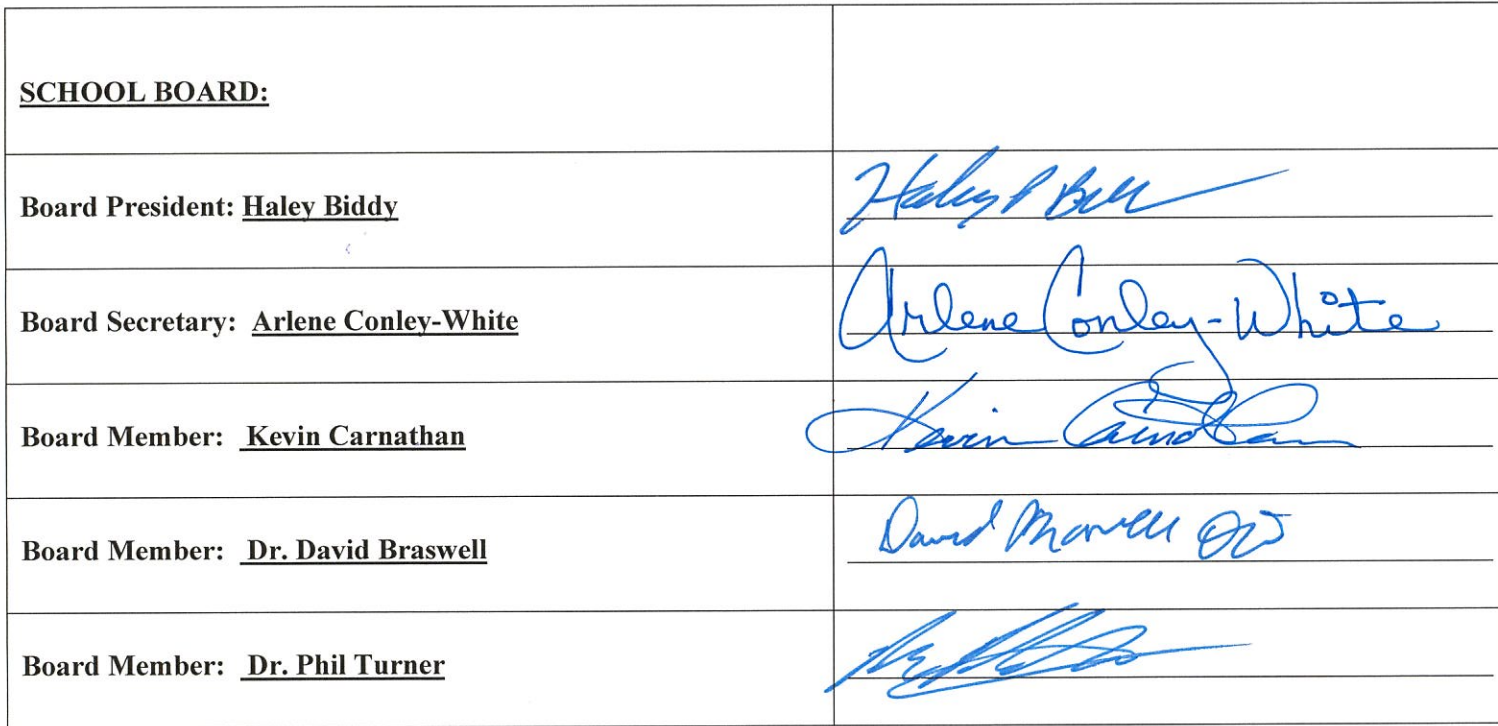 SCHOOL BOARD:
Board President: Haley Biddy
Haley
Board Secretary: Arlene Conley-White
Arlene Conley-White
Board Member: Kevin Carnathan
Kevin Carnathan
Board Member: Dr. David Braswell
David
Board Member: Dr. Phil Turner